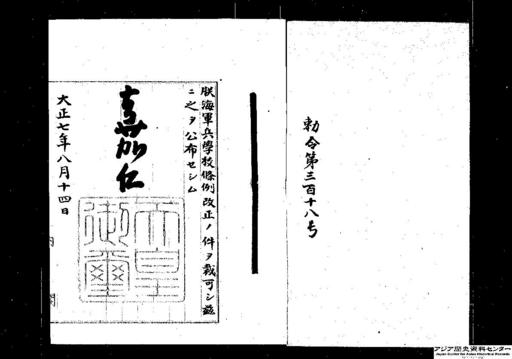 勅令第三百十八号
朕海軍兵學校條例改正ノ件ヲ裁可シ茲
ニ之ヲ公布セシム
嘉仁
天皇御璽
大正七年八月十四日
内閣
アジア歴史資料センター
Japan Center for Asian Historical Records